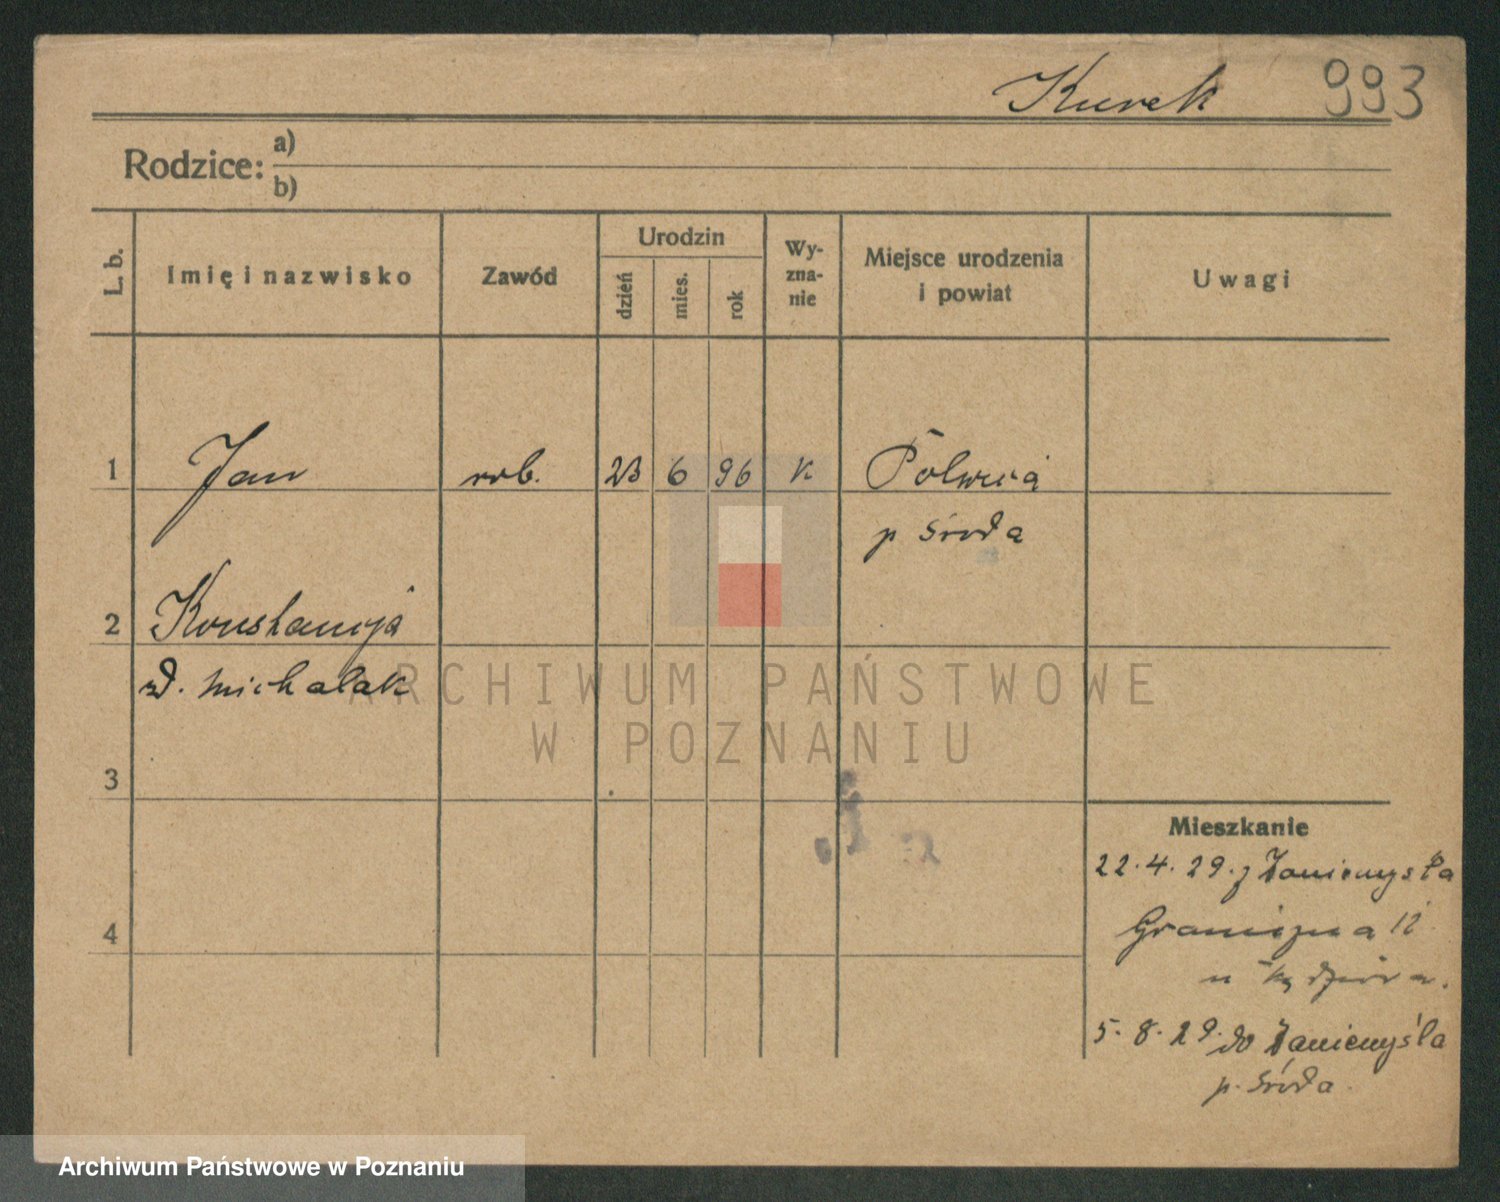 Kurek 993
Rodzice: a)
b)
L. b.
Imię i nazwisko
Zawód
Urodzin
dzień
mies.
rok
Wy-
zna-
nie
Miejsce urodzenia
i powiat
Uwagi
1 Jan rob. 23 6 96 K Polwica
p Środa
2 Konstancja
zd. Michalak
ARCHIWUM PAŃSTWOWE
W POZNANIU
3
4
Mieszkanie
22.4.29. z Zaniemyśla
Graniczna 12
u Kędziora.
5.8.29. do Zaniemyśla
p. Środa.
Archiwum Państwowe w Poznaniu